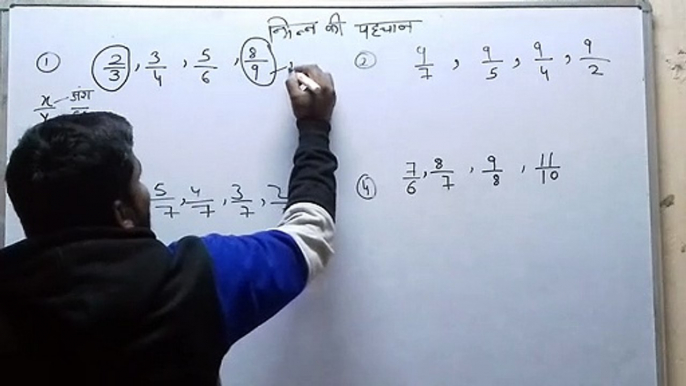 भिन्न की पहचान
① 2/3, 3/4, 5/6, 8/9
x/y अंश
② 9/7, 9/5, 9/4, 9/2
5/7, 4/7, 3/7, 2
④ 7/6, 8/7, 9/8, 11/10